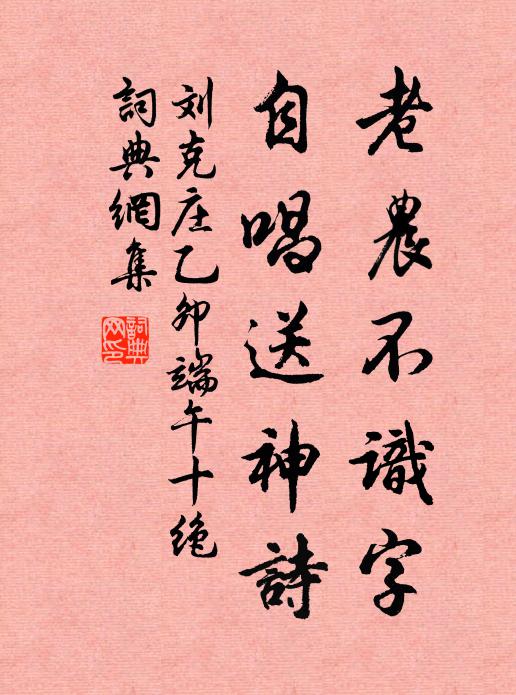 老農不識字
自唱送神詩
刘克庄乙卯端午十绝
詞典網集
詞典
网印